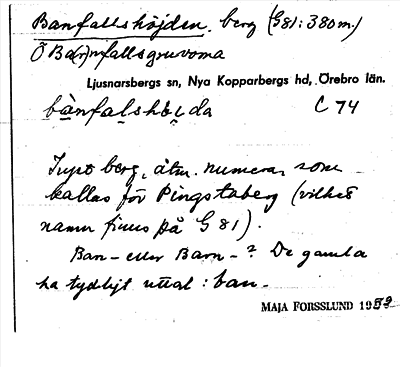 Banfallshöjden. berg (G81: 380 m.)
Ö Ba(r)nfallsgruvorna
Ljusnarsbergs sn, Nya Kopparbergs hd, Örebro län.
bànfalshö̀i da C 74
berg, åtm. numera, som
kallas för Pingstaberg (vilket
namn finns på G 81).
Ban- eller Barn-? De gamla
ha tydligt uttal: ban-
MAJA FORSSLUND 1959